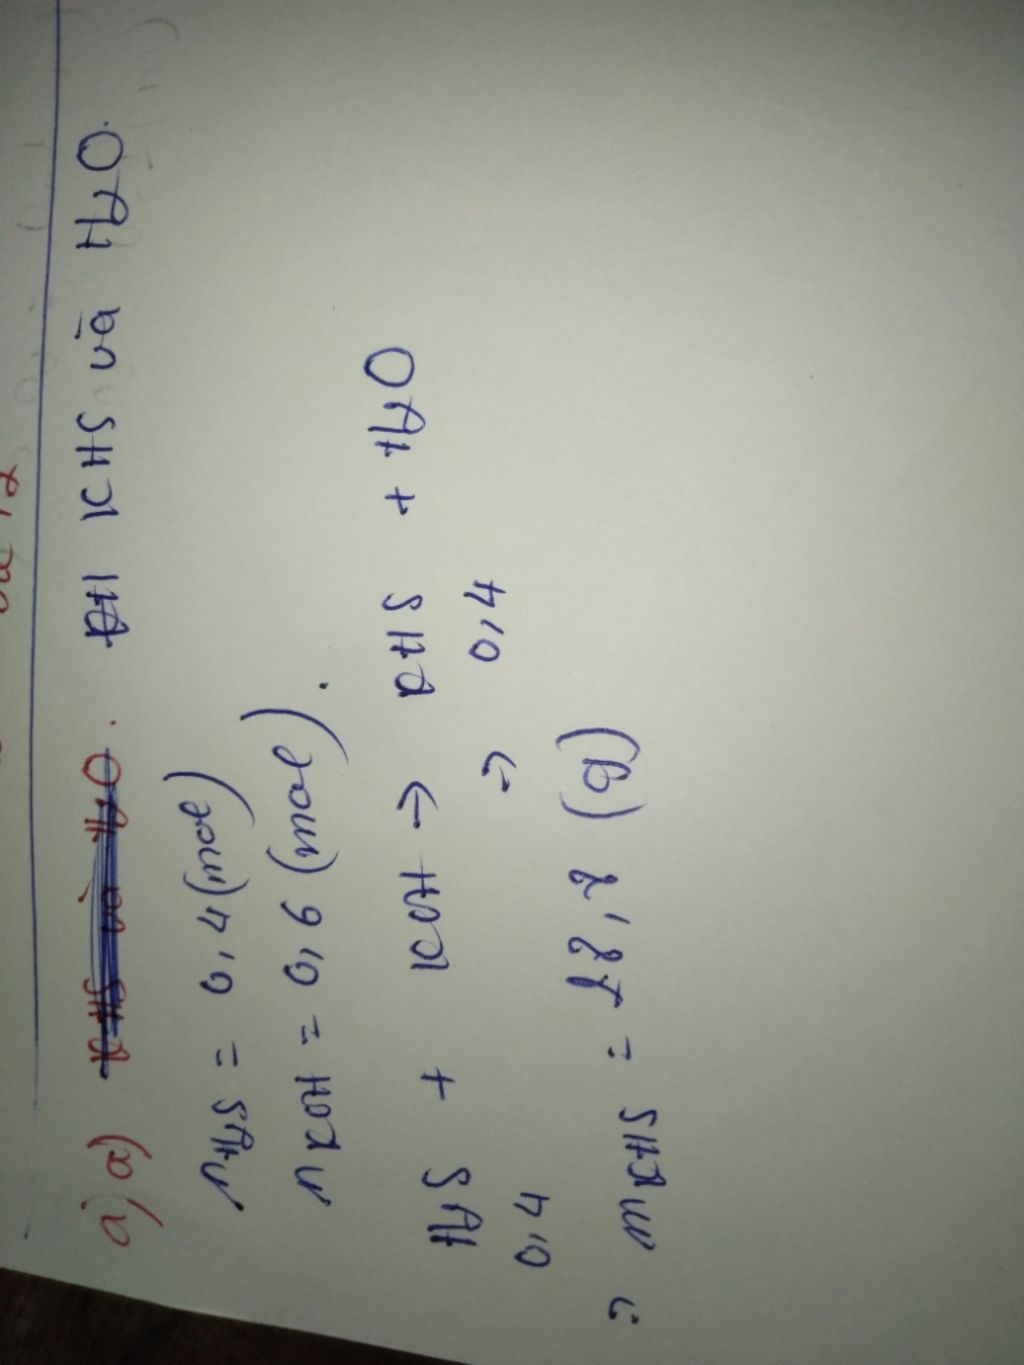 a) a) KHS và H2O. KHS và H2O.
nH2S = 0,4 (mol)
nKOH = 0,6 (mol).
H2S + KOH → KHS + H2O
0,4 → 0,4
: mKHS = 28,8 (g)